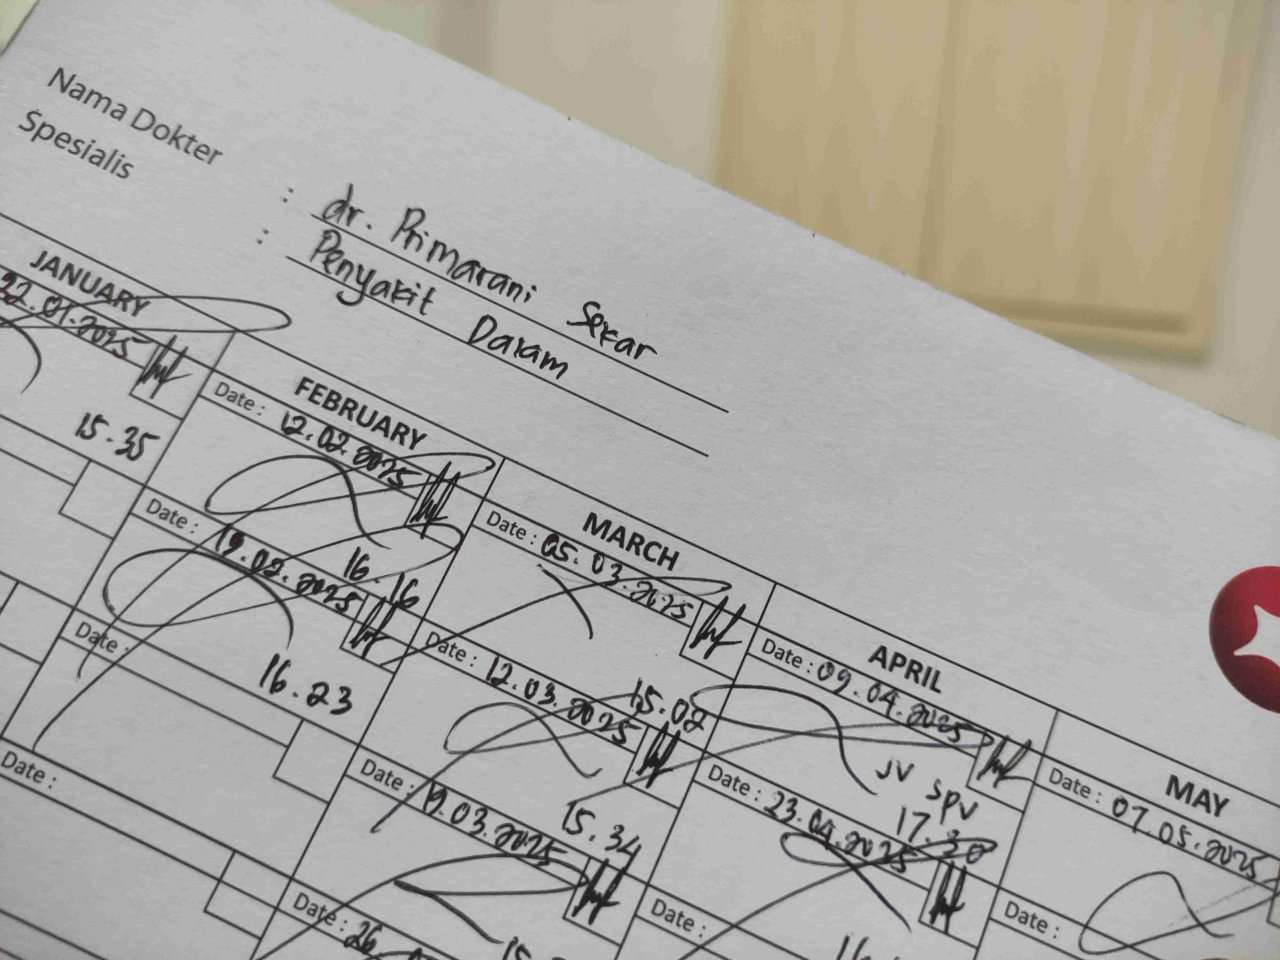 Nama Dokter : dr. Primarani Sekar
Spesialis : Penyakit Dalam
JANUARY
22.01.2025
15.35
FEBRUARY
Date : 12.02.2025
16.16
Date : 19.02.2025
16.23
Date :
Date :
MARCH
Date : 05.03.2025
15.02
Date : 12.03.2025
15.34
Date : 19.03.2025
Date : 26
APRIL
Date : 09.04.2025
JV SPV
17.30
Date : 23.04.2025
Date :
MAY
Date : 07.05.2025
Date :